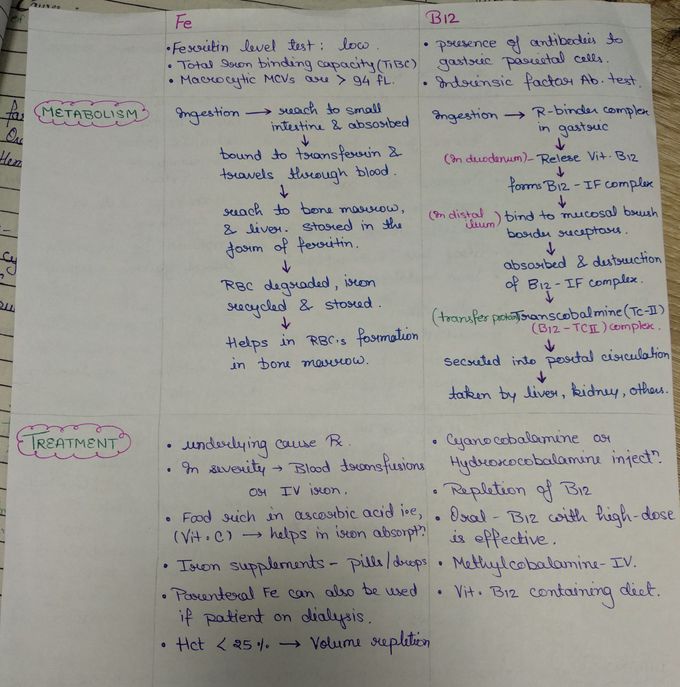 Fe
B12
• Ferritin level test : low.
• Total Iron binding capacity (TIBC)
• Macrocytic MCVs are > 94 fL.
• presence of antibodies to
gastric parietal cells.
• Intrinsic factor Ab. test.
METABOLISM
Ingestion → reach to small
intestine & absorbed
↓
bound to transferrin &
travels through blood.
↓
reach to bone marrow,
& liver. stored in the
form of ferritin.
↓
RBC degraded, iron
recycled & stored.
↓
Helps in RBC's formation
in bone marrow.
Ingestion → R-binder complex
in gastric
↓
(In duodenum) - Relese Vit. B12
↓
forms B12 - IF complex
↓
(In distal ileum) bind to mucosal brush
border receptors.
↓
absorbed & destruction
of B12 - IF complex.
↓
(transfer protein) Transcobalmine (Tc-II)
(B12 - TC II) complex.
↓
secreted into portal circulation
↓
taken by liver, kidney, others.
TREATMENT
• underlying cause Rx.
• In severity → Blood transfusions
or IV iron.
• Food rich in ascorbic acid i.e,
(Vit. C) → helps in iron absorptn.
• Iron supplements - pills/drops
• Parenteral Fe can also be used
if patient on dialysis.
• Hct < 25% → Volume repletion
• Cyanocobalamine or
Hydroxocobalamine injectn.
• Repletion of B12
• Oral - B12 with high-dose
is effective.
• Methylcobalamine - IV.
• Vit. B12 containing diet.